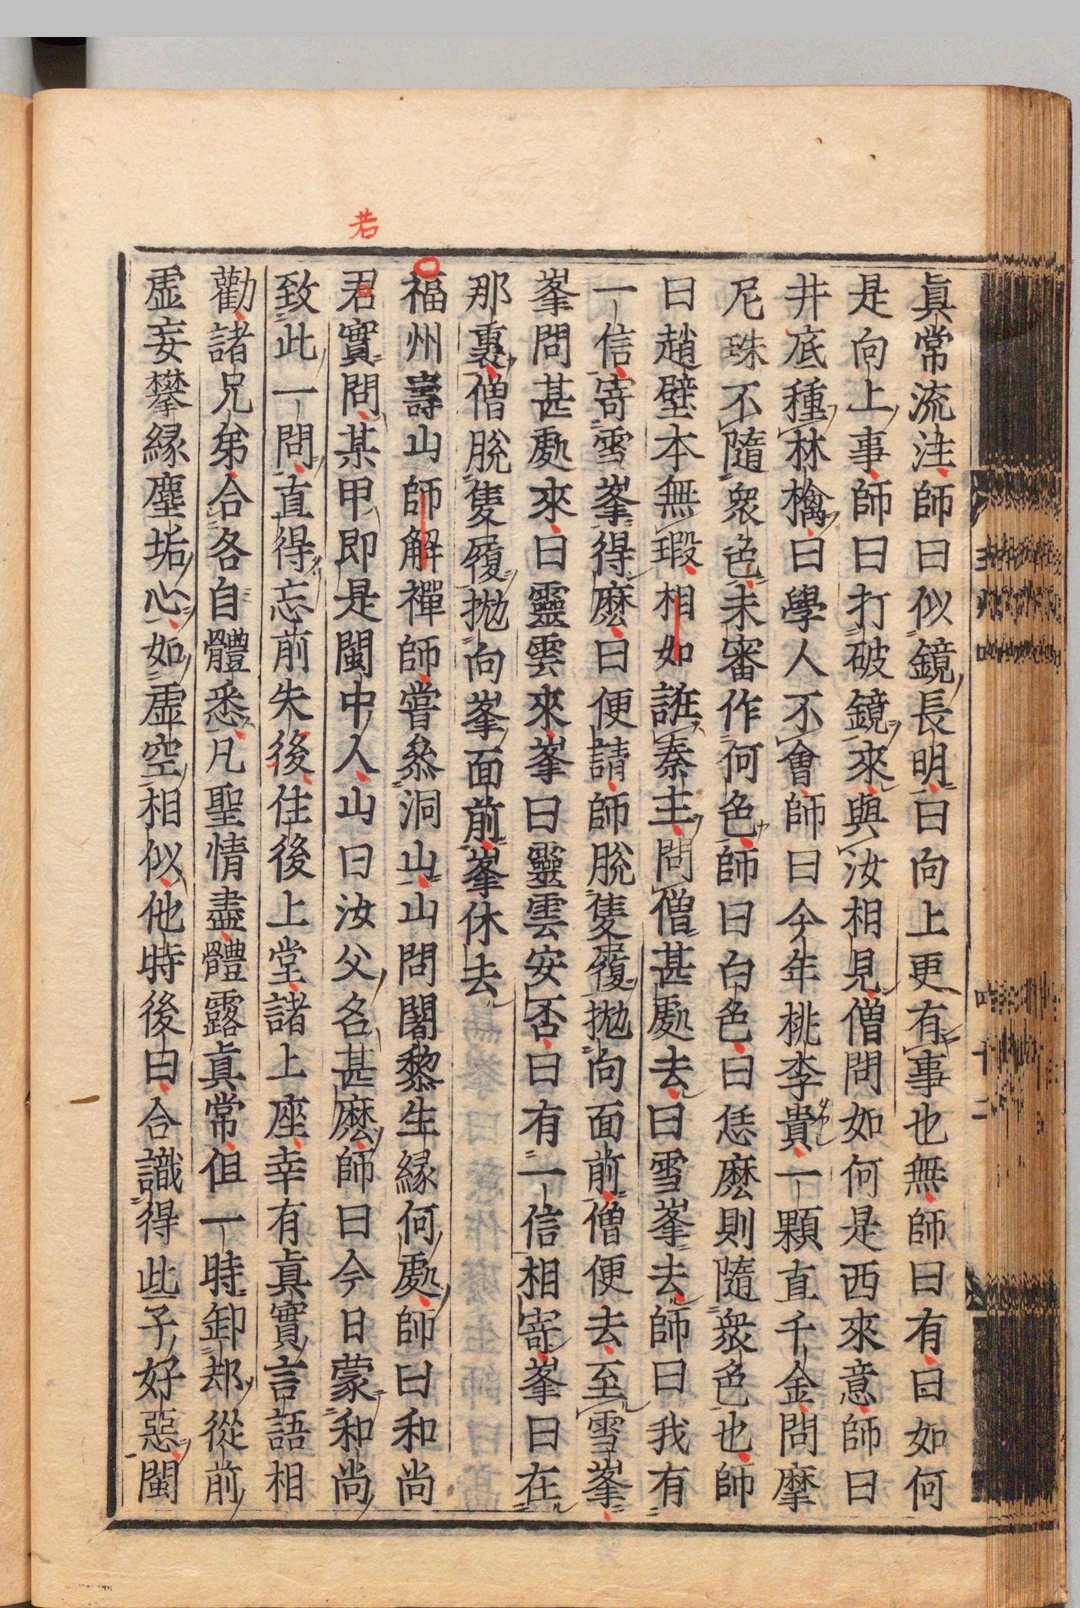 若
眞常流注師曰似鏡長明曰向上更有事也無師曰有曰如何
是向上事師曰打破鏡來與汝相見僧問如何是西來意師曰
井底種林檎曰學人不會師曰今年桃李貴一顆直千金問摩
尼珠不隨衆色未審作何色師曰白色曰恁麽則隨衆色也師
曰趙璧本無瑕相如誑秦主問僧甚處去曰雪峯去師曰我有
一信寄雪峯得麽曰便請師脫隻履抛向面前僧便去至雪峯
峯問甚處來曰靈雲來峯曰靈雲安否曰有一信相寄峯曰在
那裏僧脫隻履抛向峯面前峯休去
福州壽山師解禪師嘗叅洞山山問闍黎生緣何處師曰和尚
君實問某甲即是閩中人山曰汝父名甚麽師曰今日蒙和尚
致此一問直得忘前失後住後上堂諸上座幸有眞實言語相
勸諸兄弟合各自體悉凡聖情盡體露眞常但一時卸却從前
虛妄攀緣塵垢心如虛空相似他時後日合識得此子好惡閩